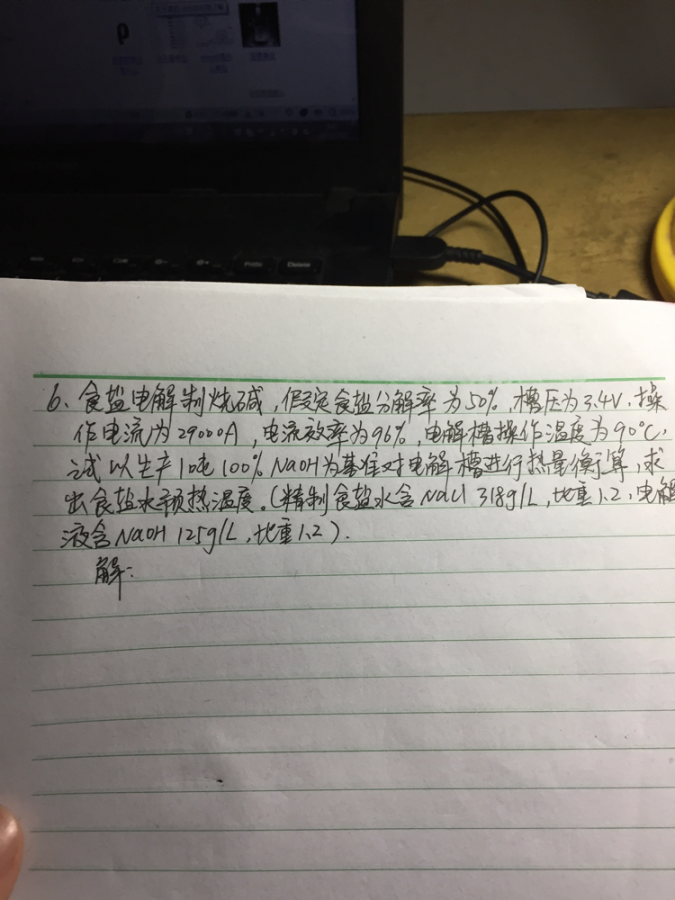 Delete
6、食盐电解制烧碱,假定食盐分解率为50%,槽压为3.4V,操
作电流为29000A,电流效率为96%,电解槽操作温度为90℃,
试以生产1吨100% NaOH为基准对电解槽进行热量衡算,求
出食盐水预热温度。(精制食盐水含NaCl 318g/L,比重1.2,电解
液含NaOH 125g/L,比重1.2).
解: